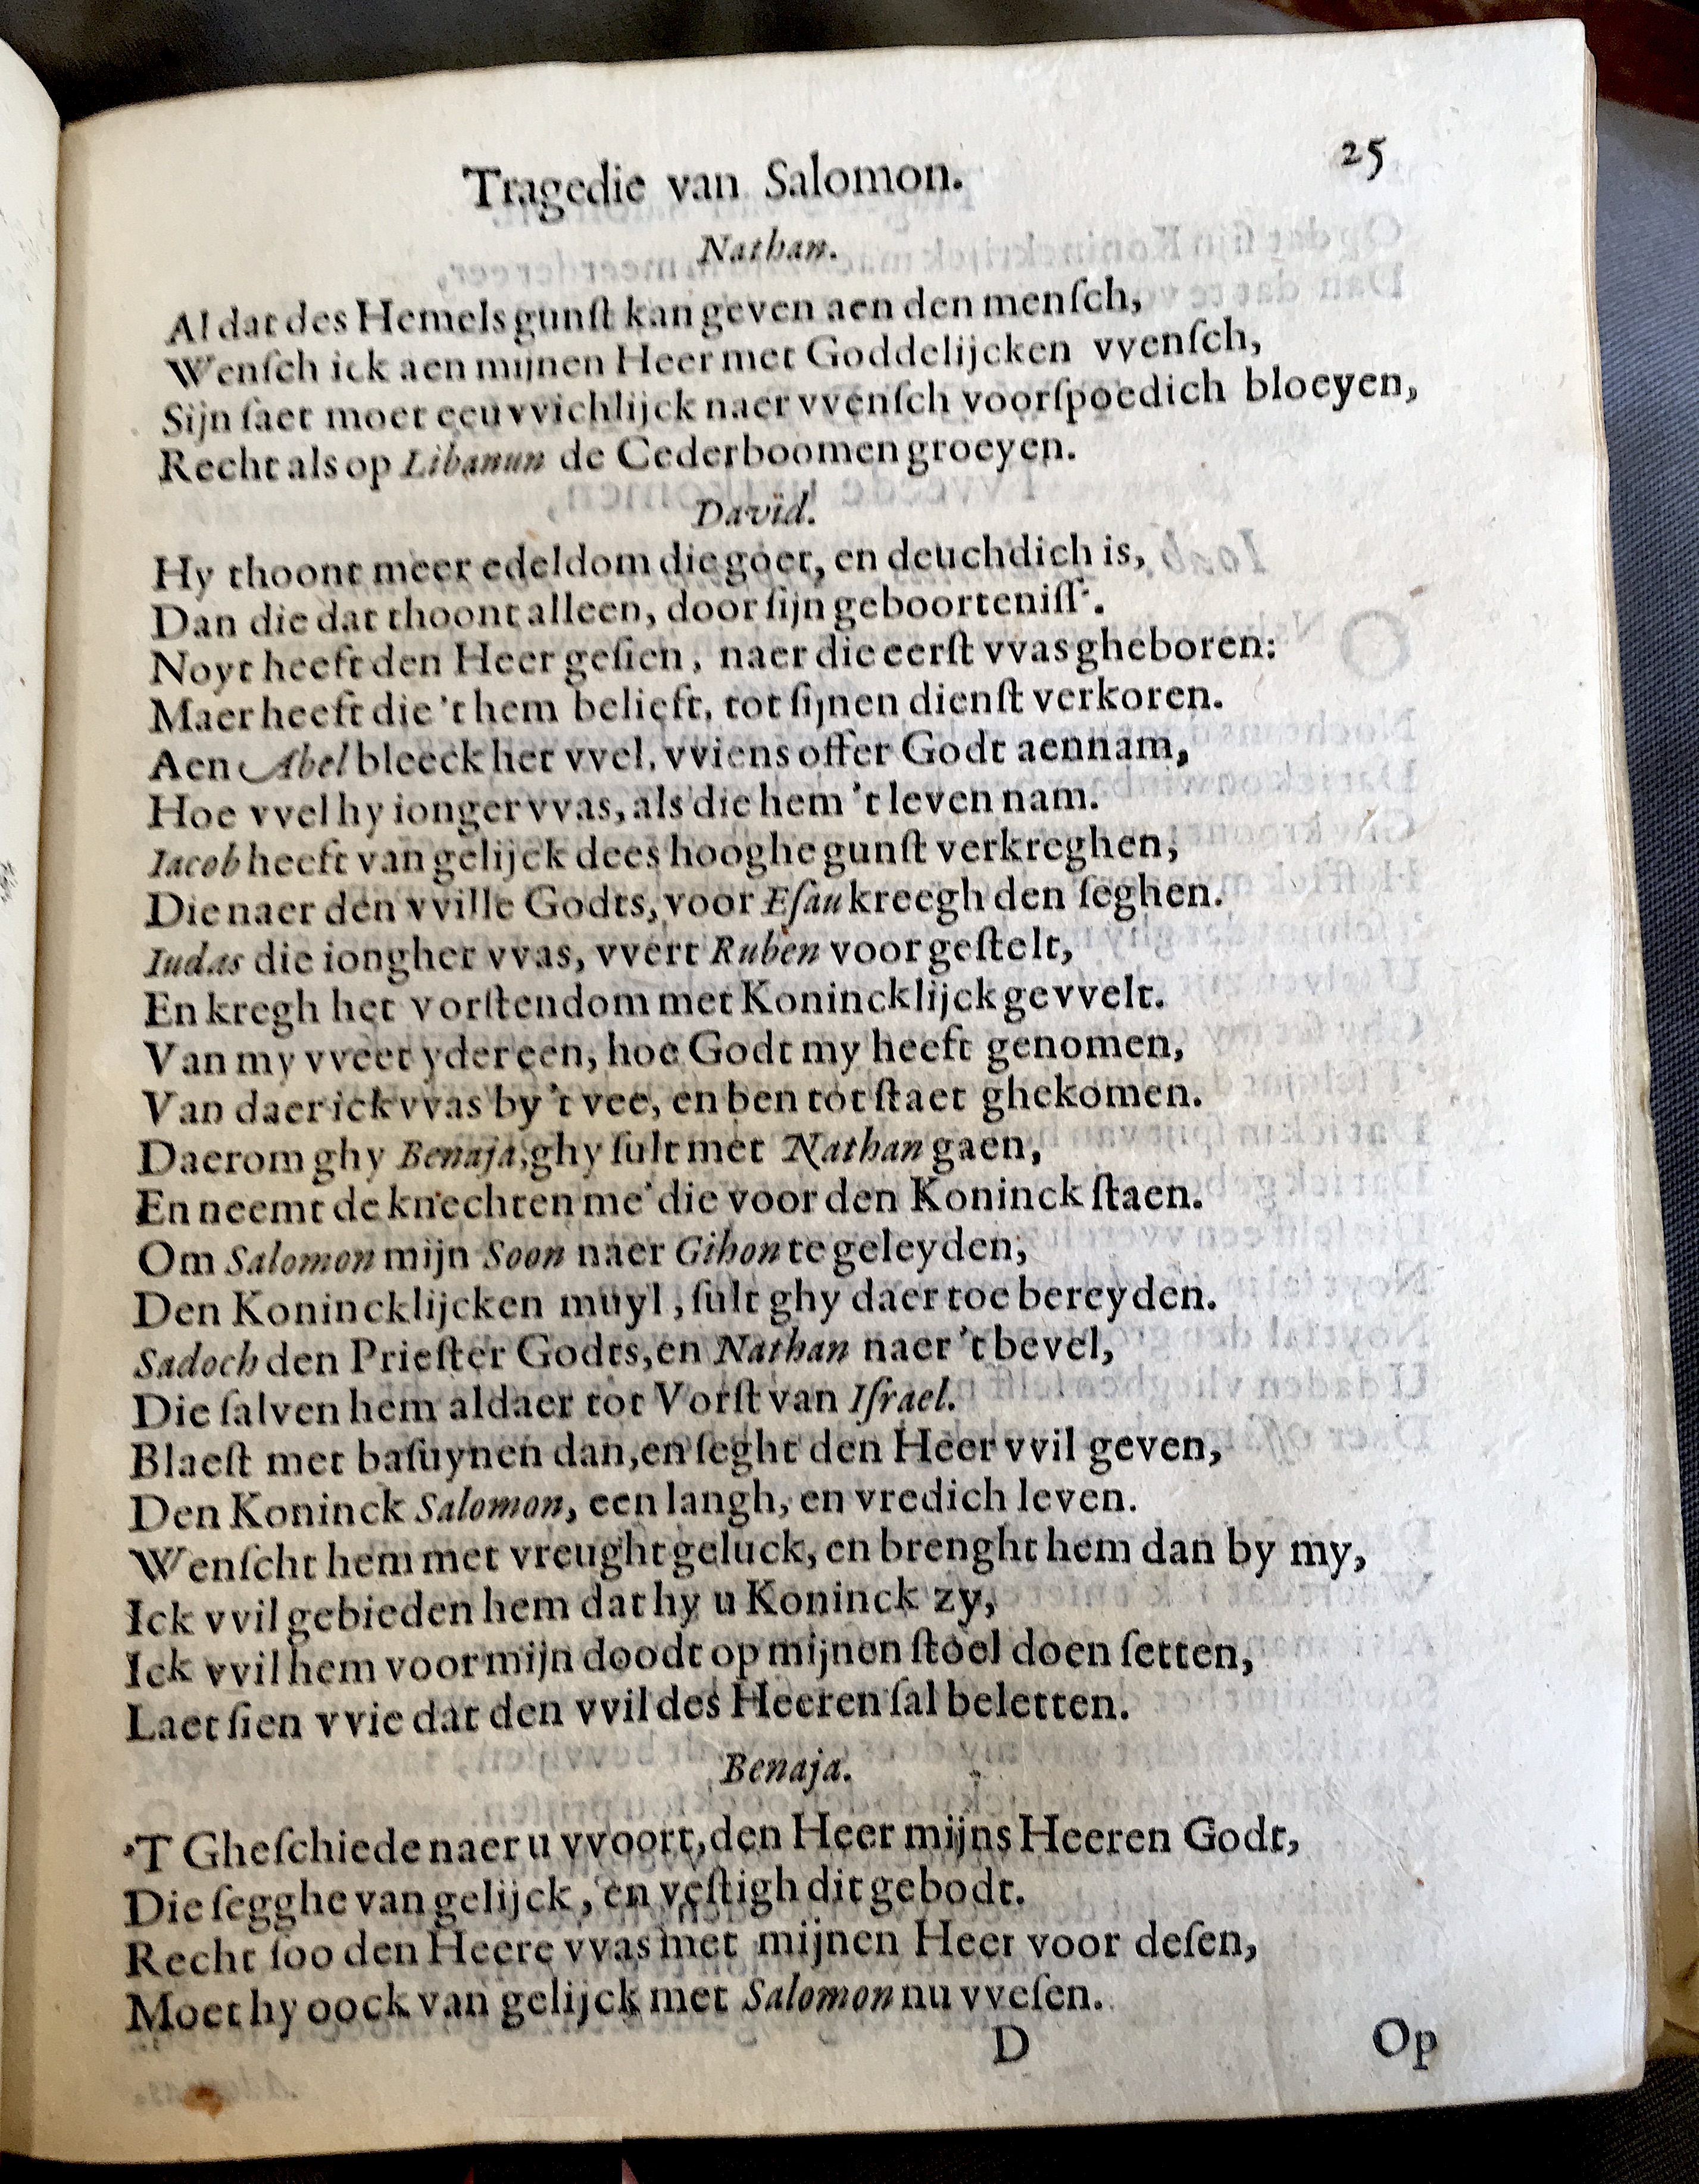 Tragedie van Salomon. 25
Nathan.
Al dat des Hemels gunſt kan geven aen den menſch,
Wenſch ick aen mijnen Heer met Goddelijcken vvenſch,
Sijn ſaet moet eeuvvichlijck naer vvenſch voorſpoedich bloeyen,
Recht als op Libanun de Cederboomen groeyen.
David.
Hy thoont meer edeldom die goet, en deuchdich is,
Dan die dat thoont alleen, door ſijn geboorteniſſ'.
Noyt heeft den Heer geſien, naer die eerſt vvas gheboren:
Maer heeft die 't hem belieft, tot ſijnen dienſt verkoren.
Aen Abel bleeck het vvel, vviens offer Godt aennam,
Hoe vvel hy ionger vvas, als die hem 't leven nam.
Iacob heeft van gelijck dees hooghe gunſt verkreghen,
Die naer den vville Godts, voor Eſau kreegh den ſeghen.
Iudas die iongher vvas, vvert Ruben voor geſtelt,
En kregh het vorſtendom met Konincklijck gevvelt.
Van my vveet yder een, hoe Godt my heeft genomen,
Van daer ick vvas by 't vee, en ben tot ſtaet ghekomen.
Daerom ghy Benaja, ghy ſult met Nathan gaen,
En neemt de knechten me' die voor den Koninck ſtaen.
Om Salomon mijn Soon naer Gihon te geleyden,
Den Konincklijcken muyl, ſult ghy daer toe bereyden.
Sadoch den Prieſter Godts, en Nathan naer 't bevel,
Die ſalven hem aldaer tot Vorſt van Iſrael.
Blaeſt met baſuynen dan, en ſeght den Heer vvil geven,
Den Koninck Salomon, een langh, en vredich leven.
Wenſcht hem met vreught geluck, en brenght hem dan by my,
Ick vvil gebieden hem dat hy u Koninck zy,
Ick vvil hem voor mijn doodt op mijnen ſtoel doen ſetten,
Laet ſien vvie dat den vvil des Heeren ſal beletten.
Benaja.
'T Gheſchiede naer u vvoort, den Heer mijns Heeren Godt,
Die ſegghe van gelijck, en veſtigh dit gebodt.
Recht ſoo den Heere vvas met mijnen Heer voor deſen,
Moet hy oock van gelijck met Salomon nu vveſen.
D Op